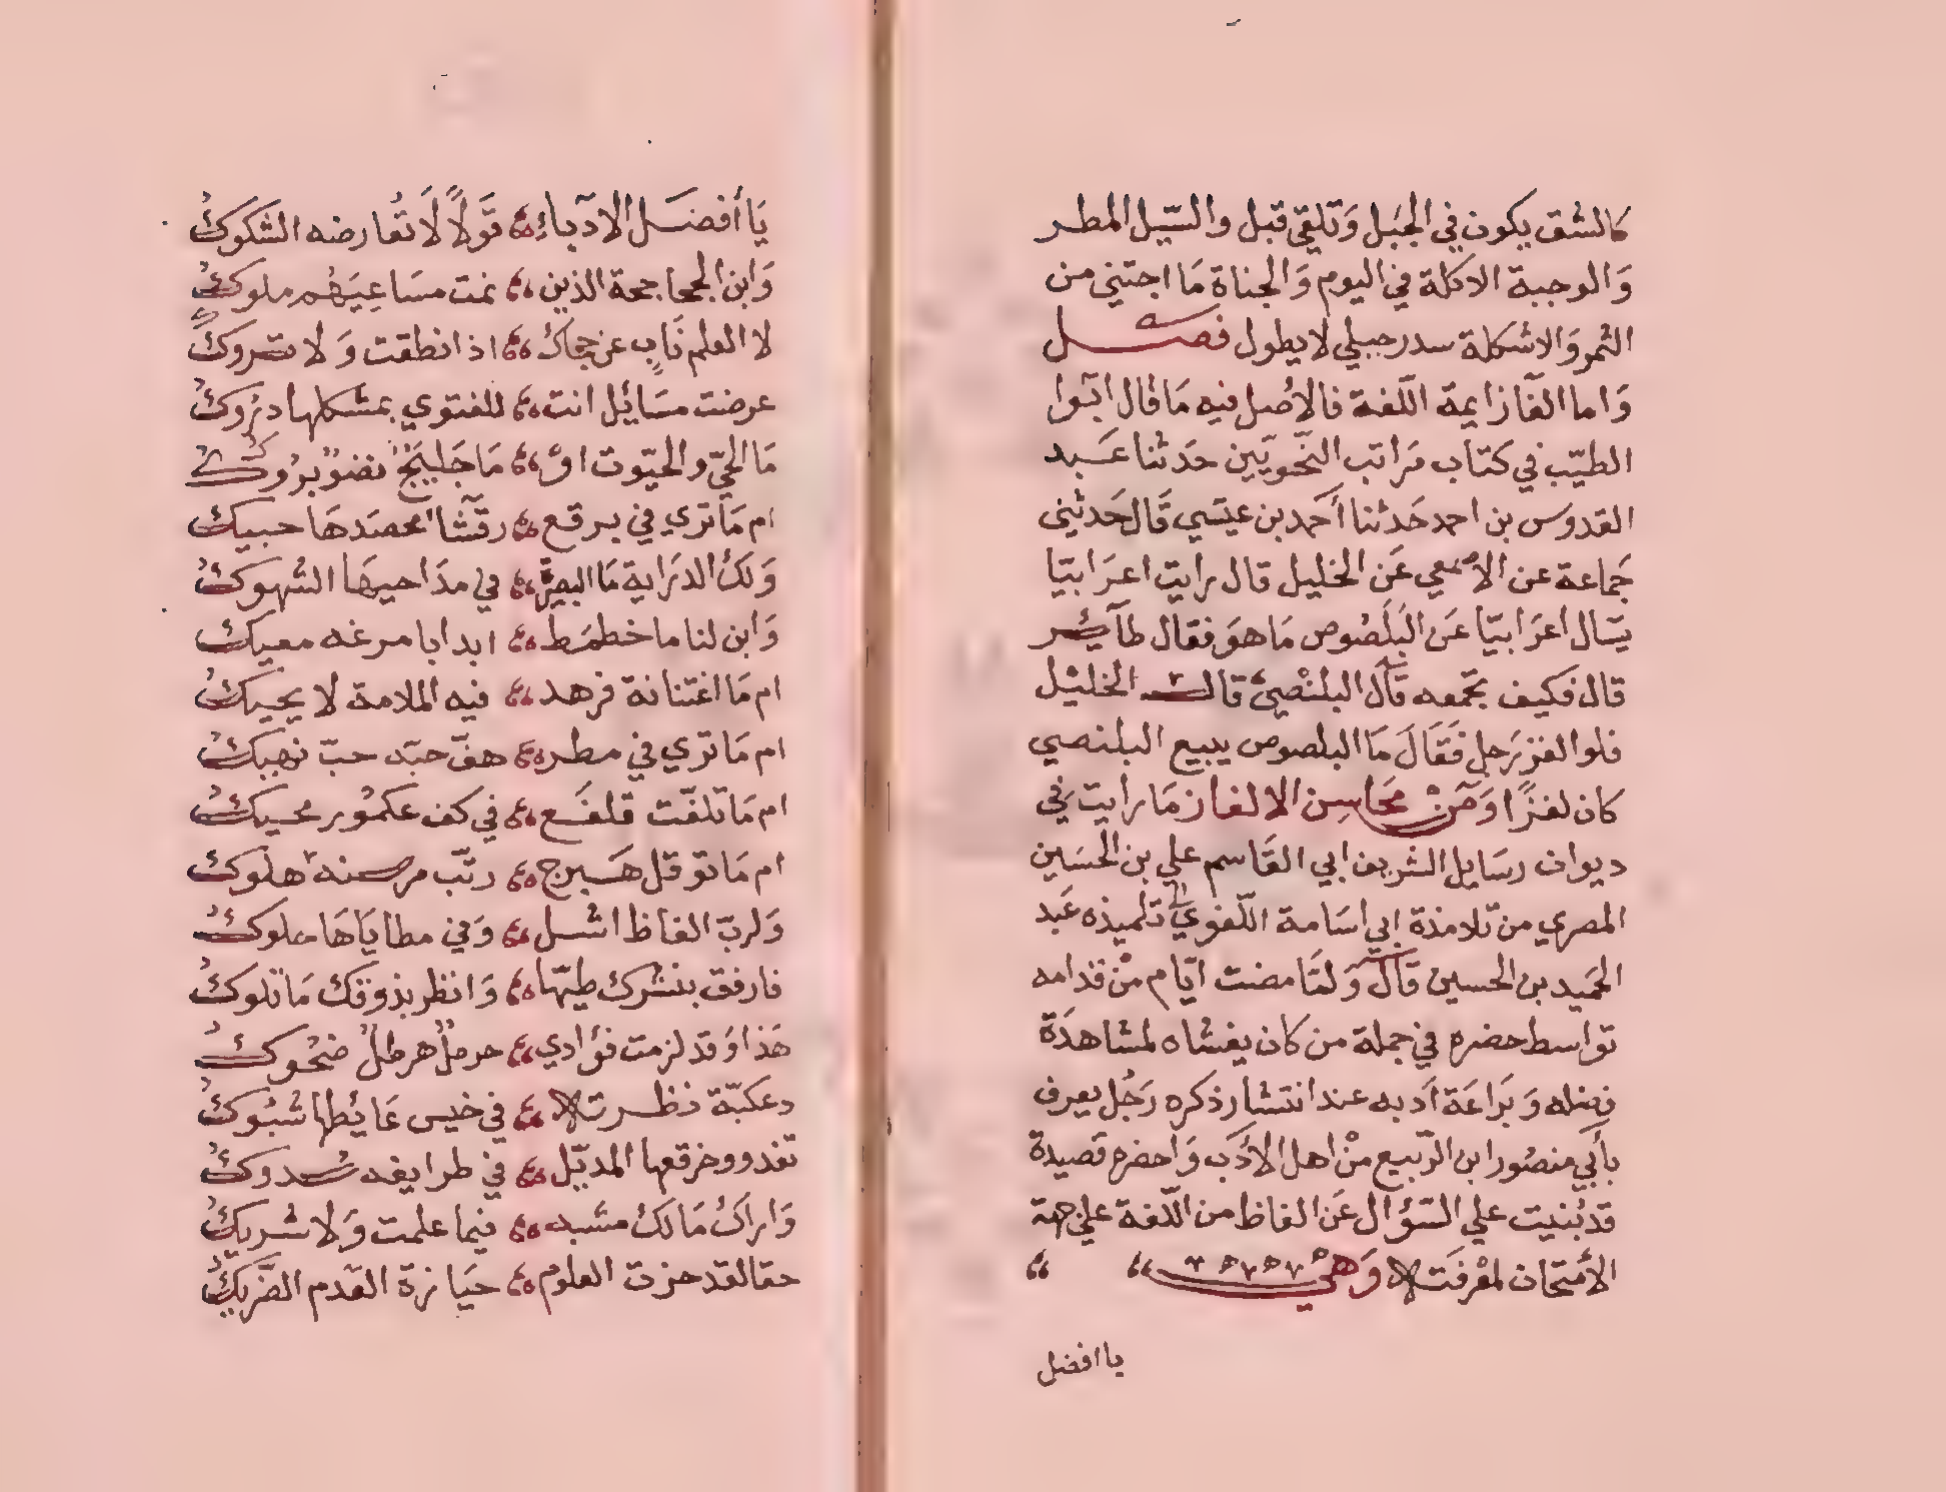 كالشق يكون في الجبل وتلقى قبل والسيل المطر
والوجبة الاكلة في اليوم والجناة ما اجتني من
الثمر والاشكلة سدر جبلي لا يطول فصل
واما الغاز ايمة اللغة فالاصل فيه ما قال ابوا
الطيب في كتاب مراتب النحويين حدثنا عبد
القدوس بن احمد حدثنا أحمد بن عيسي قال حدثني
جماعة عن الاصمعي عن الخليل قال رايت اعرابيا
يسال اعرابيا عن البلصوص ما هو فقال طآئر
قال فكيف تجمعه قال البلنصي قال الخليل
فلو الغز رجل فقال ما البلصوص يبيع البلنصي
كان لغزا ومن محاسن الالغاز ما رايت في
ديوان رسايل الشريف ابي القاسم علي بن الحسين
المصري من تلامذة ابي اسامة اللغوي الى تلميذه عبد
الحميد بن الحسين قال ولما مضت ايام من قدامه
تواسط حضره في جملة من كان يغشاه لمشاهدة
فضله وبراعة أدبه عند انتشار ذكره رجل يعرف
بأبي منصور ابن الربيع من اهل الادب واحضره قصيدة
قد بنيت علي السؤال عن الفاظ من اللغة علي جهة
الأمتحان لمعرفته وهي
يا افضل
يا أفضل الادباء قولاً لا تعارضه الشكوك
وابن الجحاجحة الذين نمت مساعيهم ملوك
لا العلم ناب عن حجاك اذا نطقت ولا تروك
عرضت مسائل انت للفتوي بمشكلها دروك
ما الحي والحيوت او ما جلبنج نضو بروك
ام ما تري في برقع رقشا محصدها حبيك
ولك الدراية ما البصير في مداحيها السهوك
وابن لنا ما خطمط ابدا با مرغه معيك
ام ما اغتنانة فرهد فيه الملامة لا يحيك
ام ما تري في مطر هف حبه حب نهيك
ام ما تلفت قلفع في كف عكموز محيك
ام ما توقل هبرج رتب هلوك
ولرب الفاظ اشل وفي مطاياها علوك
فارفق بنشرك طيها وانظر بذوقك ما تلوك
هذا وقد لزمت فؤادي حرمل هرطل ضحوك
دعكبة نظرت في خيس غايطها شبوك
تغدو وخرقعها المدبل في طرايفه سدوك
واراك مالك مشبه فيما علمت ولا شريك
حقا لقد حزت العلوم حيازة القدم الضريك